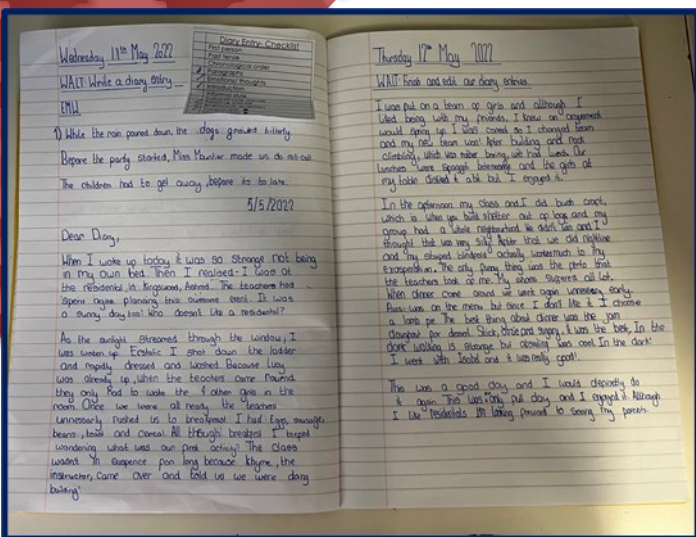 Wednesday 11th May 2022
WALT: Write a diary entry
EMW
Diary Entry: Checklist
First person
Past tense
Chronological order
Paragraphs
Emotional thoughts
Introduction
1) While the rain poured down the dogs growled bitterly.
Before the party started, Miss made us do roll call.
The children had to get away, before its to late.
5/5/2022
Dear Diary,
When I woke up today it was so strange not being
in my own bed. Then I realised - I was at
the residential in Kingswood, Ashford. The teachers had
spent ages planning this awesome event. It was
a sunny day too! Who doesn't like a residential?
As the sunlight streamed through the window, I
was woken up. Ecstatic I shot down the ladder
and rapidly dressed and washed. Because Lucy
was already up, when the teachers came round
they only had to wake the 4 other girls in the
room. Once we were all ready the teachers
unnecessarly rushed us to breakfast. I had: Eggs, sausage,
beans, toast and Cereal. All through breakfast I keeped
wondering what was our first activity? The class
wasnt in suspence for long because Rhyme, the
instructor, came over and told us we were doing
building!
Thursday 12th May 2022
WALT: Finish and edit our diary entries.
I was put on a team of girls and although I
liked being with my friends, I knew an argument
would spring up. I was correct so I changed team
and my new team won! After building and rock
climbing, which was rather boring, we had lunch. Our
lunches were Spaggti bolenaise and the girls at
my table disliked it abit but I enjoyed it.
In the afternoon my class and I did bush craft,
which is when you build shelter out of logs and my
group had a whole neighbourhood. We didn't win and I
thought that was very silly. After that we did nightline
and my striped blindfold actually worked much to my
exasperation. The only funny thing was the photo that
the teachers took of me. My shoes suffered all lot.
When dinner came around we went again unnessary early.
Pasta was on the menu but since I don't like it I choose
a lamb pie. The best thing about dinner was the jam
doughnut for desert. Stick, and sugary, it was the best. In the
dark walking is strange but crawling was cool. In the dark!
I went with Isabel and it was really good!
This was a good day and I would definitly do
it again. This was only full day and I enjoyed it. Although
I like residentals Im looking forward to seeing my parents.